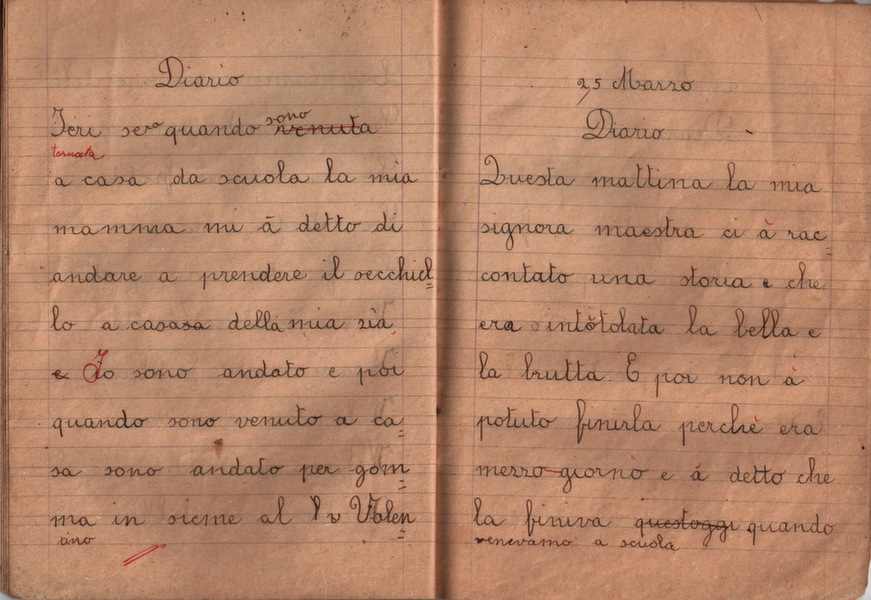 Diario
Ieri sera quando sono venuta
tornata
a casa da scuola la mia
mamma mi á detto di
andare a prendere il secchiel
lo a casasa della mia zia
e Io sono andato e poi
quando sono venuto a ca
sa sono andato per gom
ma in sieme al Valen
tino
25 Marzo
Diario
Questa mattina la mia
signora maestra ci à rac
contato una storia e che
era intitolata la bella e
la brutta. E poi non à
potuto finirla perchè era
mezzo-giorno e á detto che
la finiva questoggi quando
venevamo a scuola